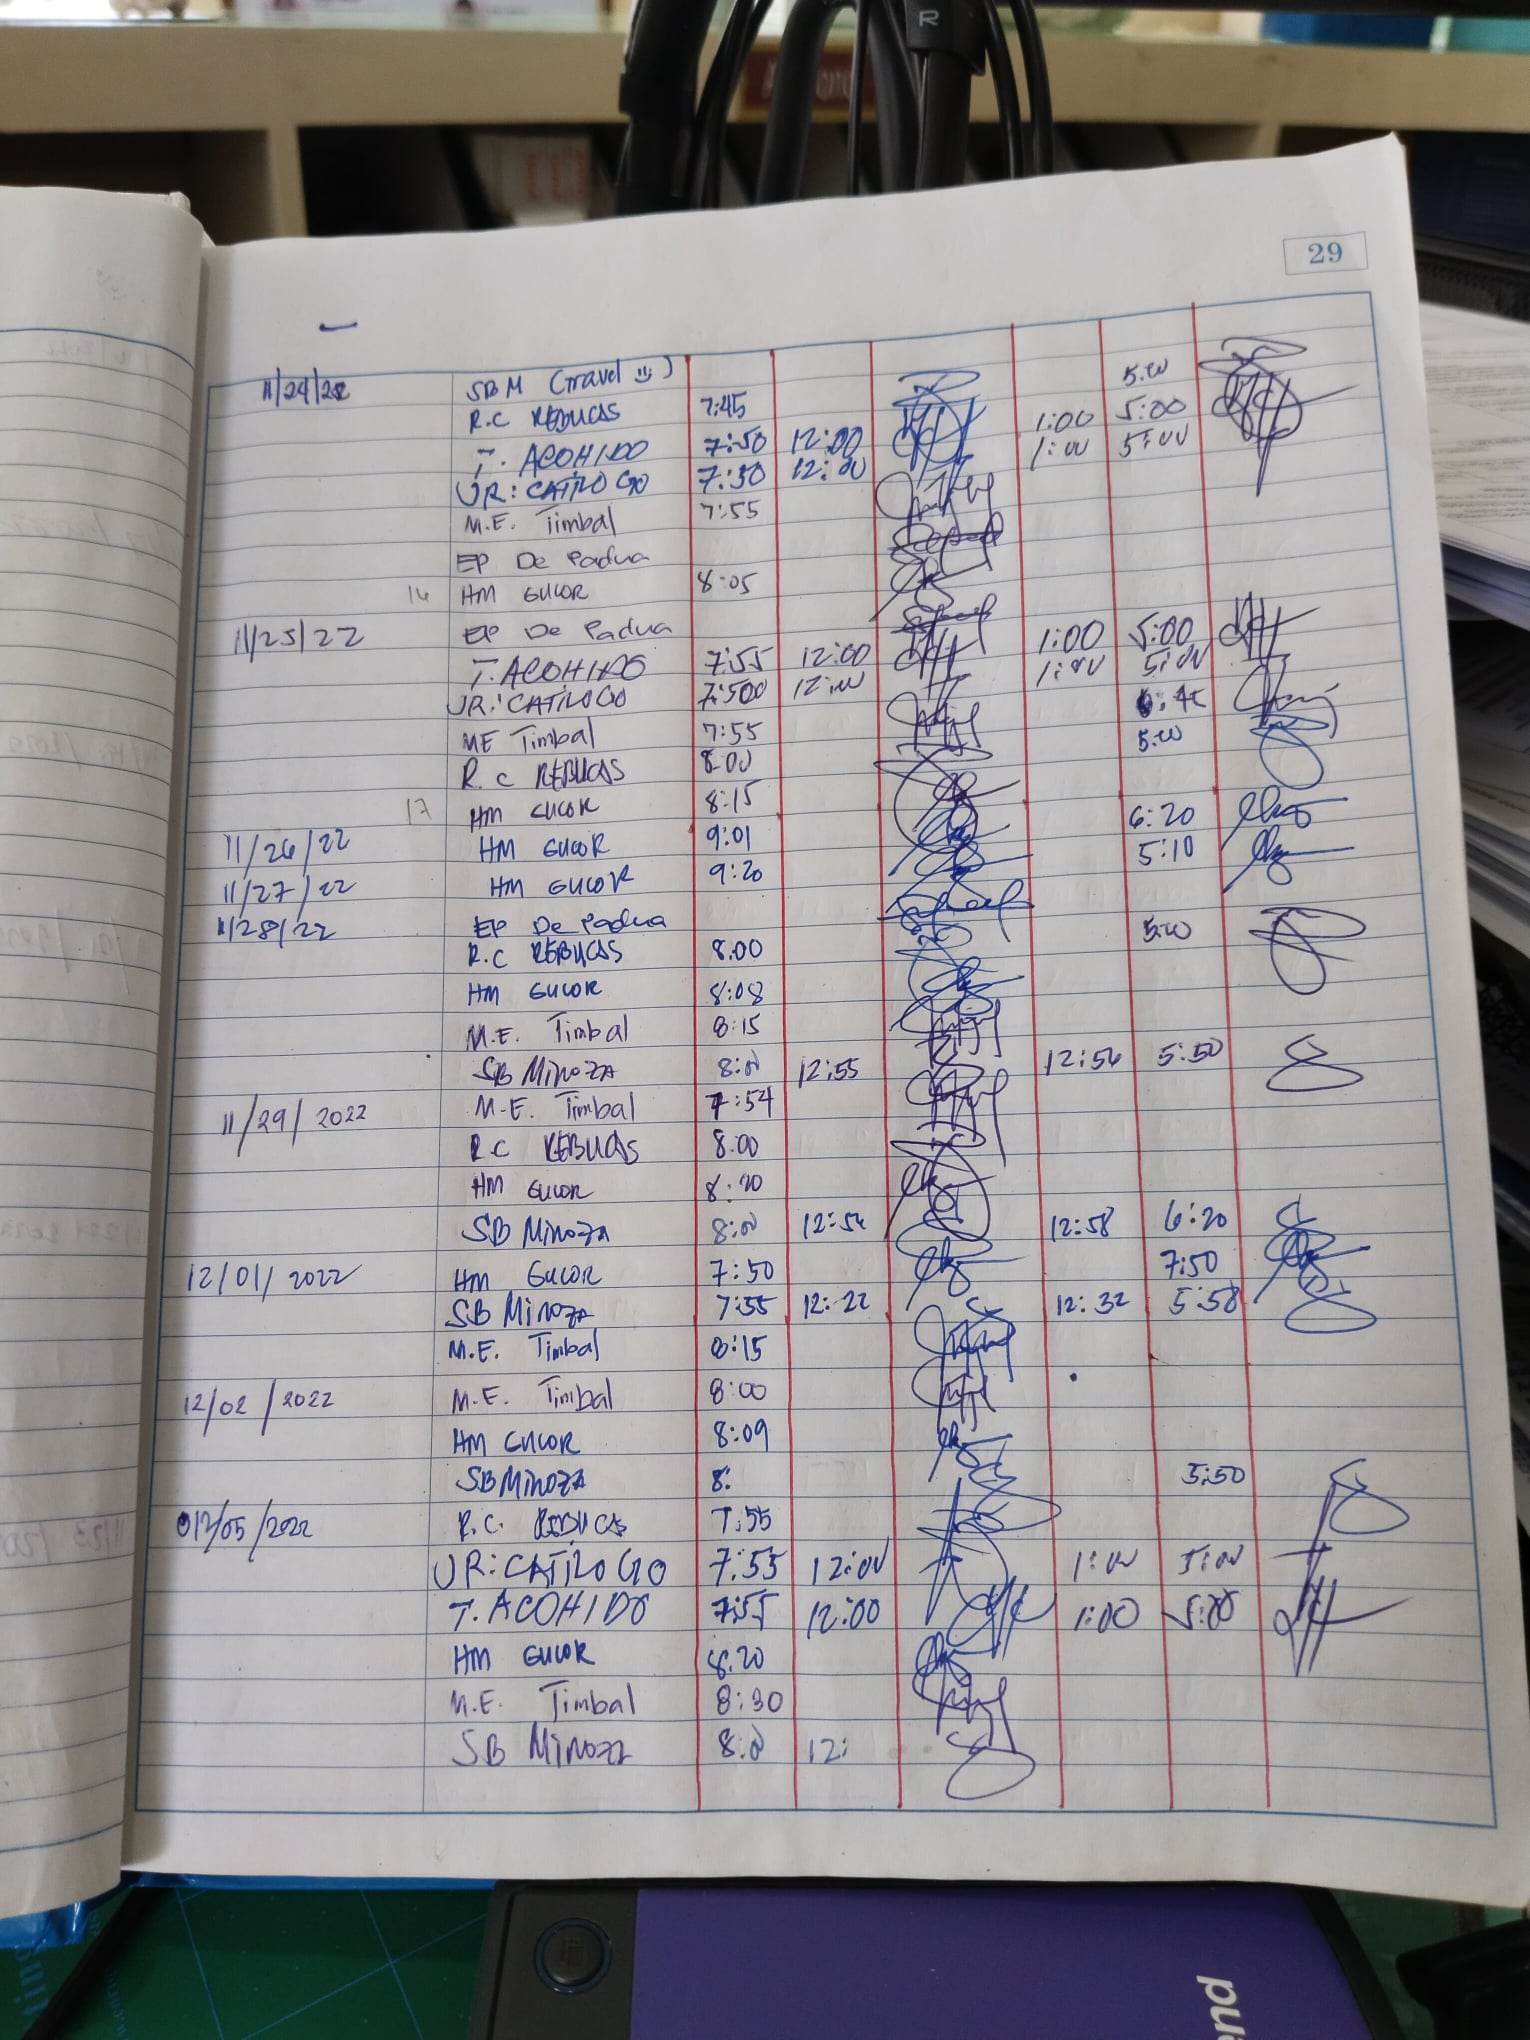 R
29
11/24/22 SBM (travel )
R.C REBUCAS 7:45 5.00
T. ACOHIDO 7:50 12:00 1:00 5:00
JR: CATILOGO 7:30 12:00 1:00 5:00
M.E. Timbal 7:55
EP De Padua
16 HM GUCOR 8:05
11/25/22 EP De Padua
T. ACOHIDO 7:55 12:00 1:00 5:00
JR: CATILOGO 12:00 1:00 5:00
ME Timbal 7:55
R.C REBUCAS 8:00 5.00
17 HM GUCOR 8:15
11/26/22 HM GUCOR 9:01 6:20
11/27/22 HM GUCOR 9:20 5:10
11/28/22 EP De Padua
R.C REBUCAS 8.00 5.00
HM GUCOR 8:08
M.E. Timbal 8:15
SB MINOZA 8:00 12:55 12:56 5:50
11/29/2022 M.E. Timbal 7:54
R.C REBUCAS 8.00
HM GUCOR 8:20
SB MINOZA 8:00 12:54 12:58 6:20
12/01/2022 HM GUCOR 7:50 7:50
SB MINOZA 7:55 12:22 12:32 5:58
M.E. Timbal 8:15
12/02/2022 M.E. Timbal 8:00
HM GUCOR 8:09
SB MINOZA 8: 5:50
12/05/2022 R.C. REBUCAS 7:55
JR: CATILOGO 7:55 12:00 1:00 5:00
T. ACOHIDO 7:55 12:00 1:00 5:00
HM GUCOR 8.20
M.E. Timbal 8:30
SB MINOZA 8:00 12: